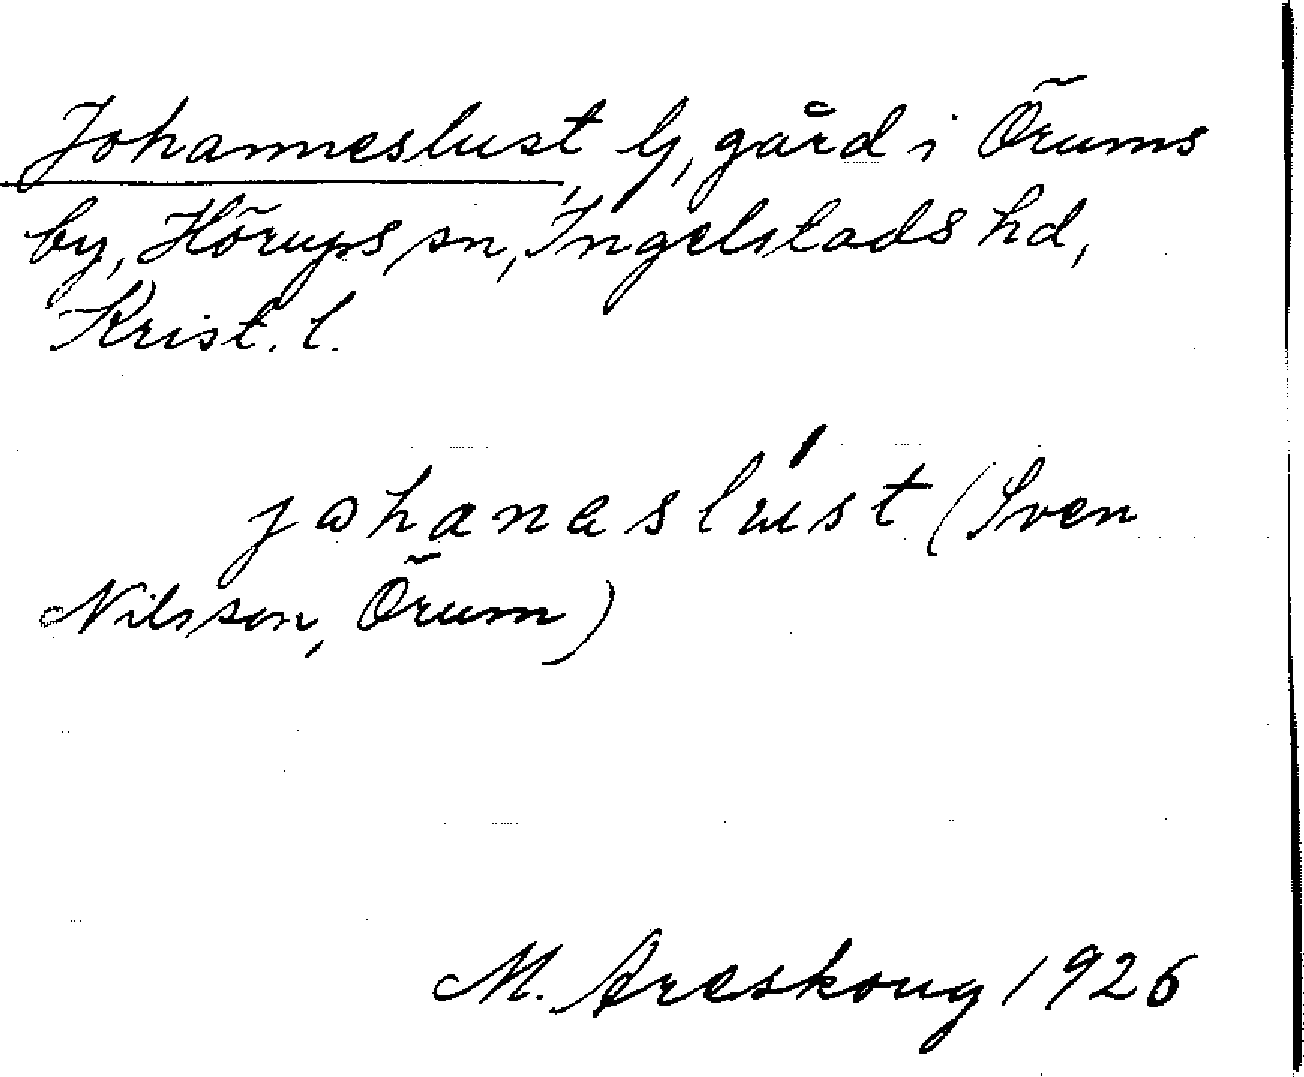 Johanneslust, G, gård i Örums
by, Hörups sn, Ingelstads hd,
Krist. l.
johanaslúst (Sven
Nilsson, Örum)
M. Areskoug 1926